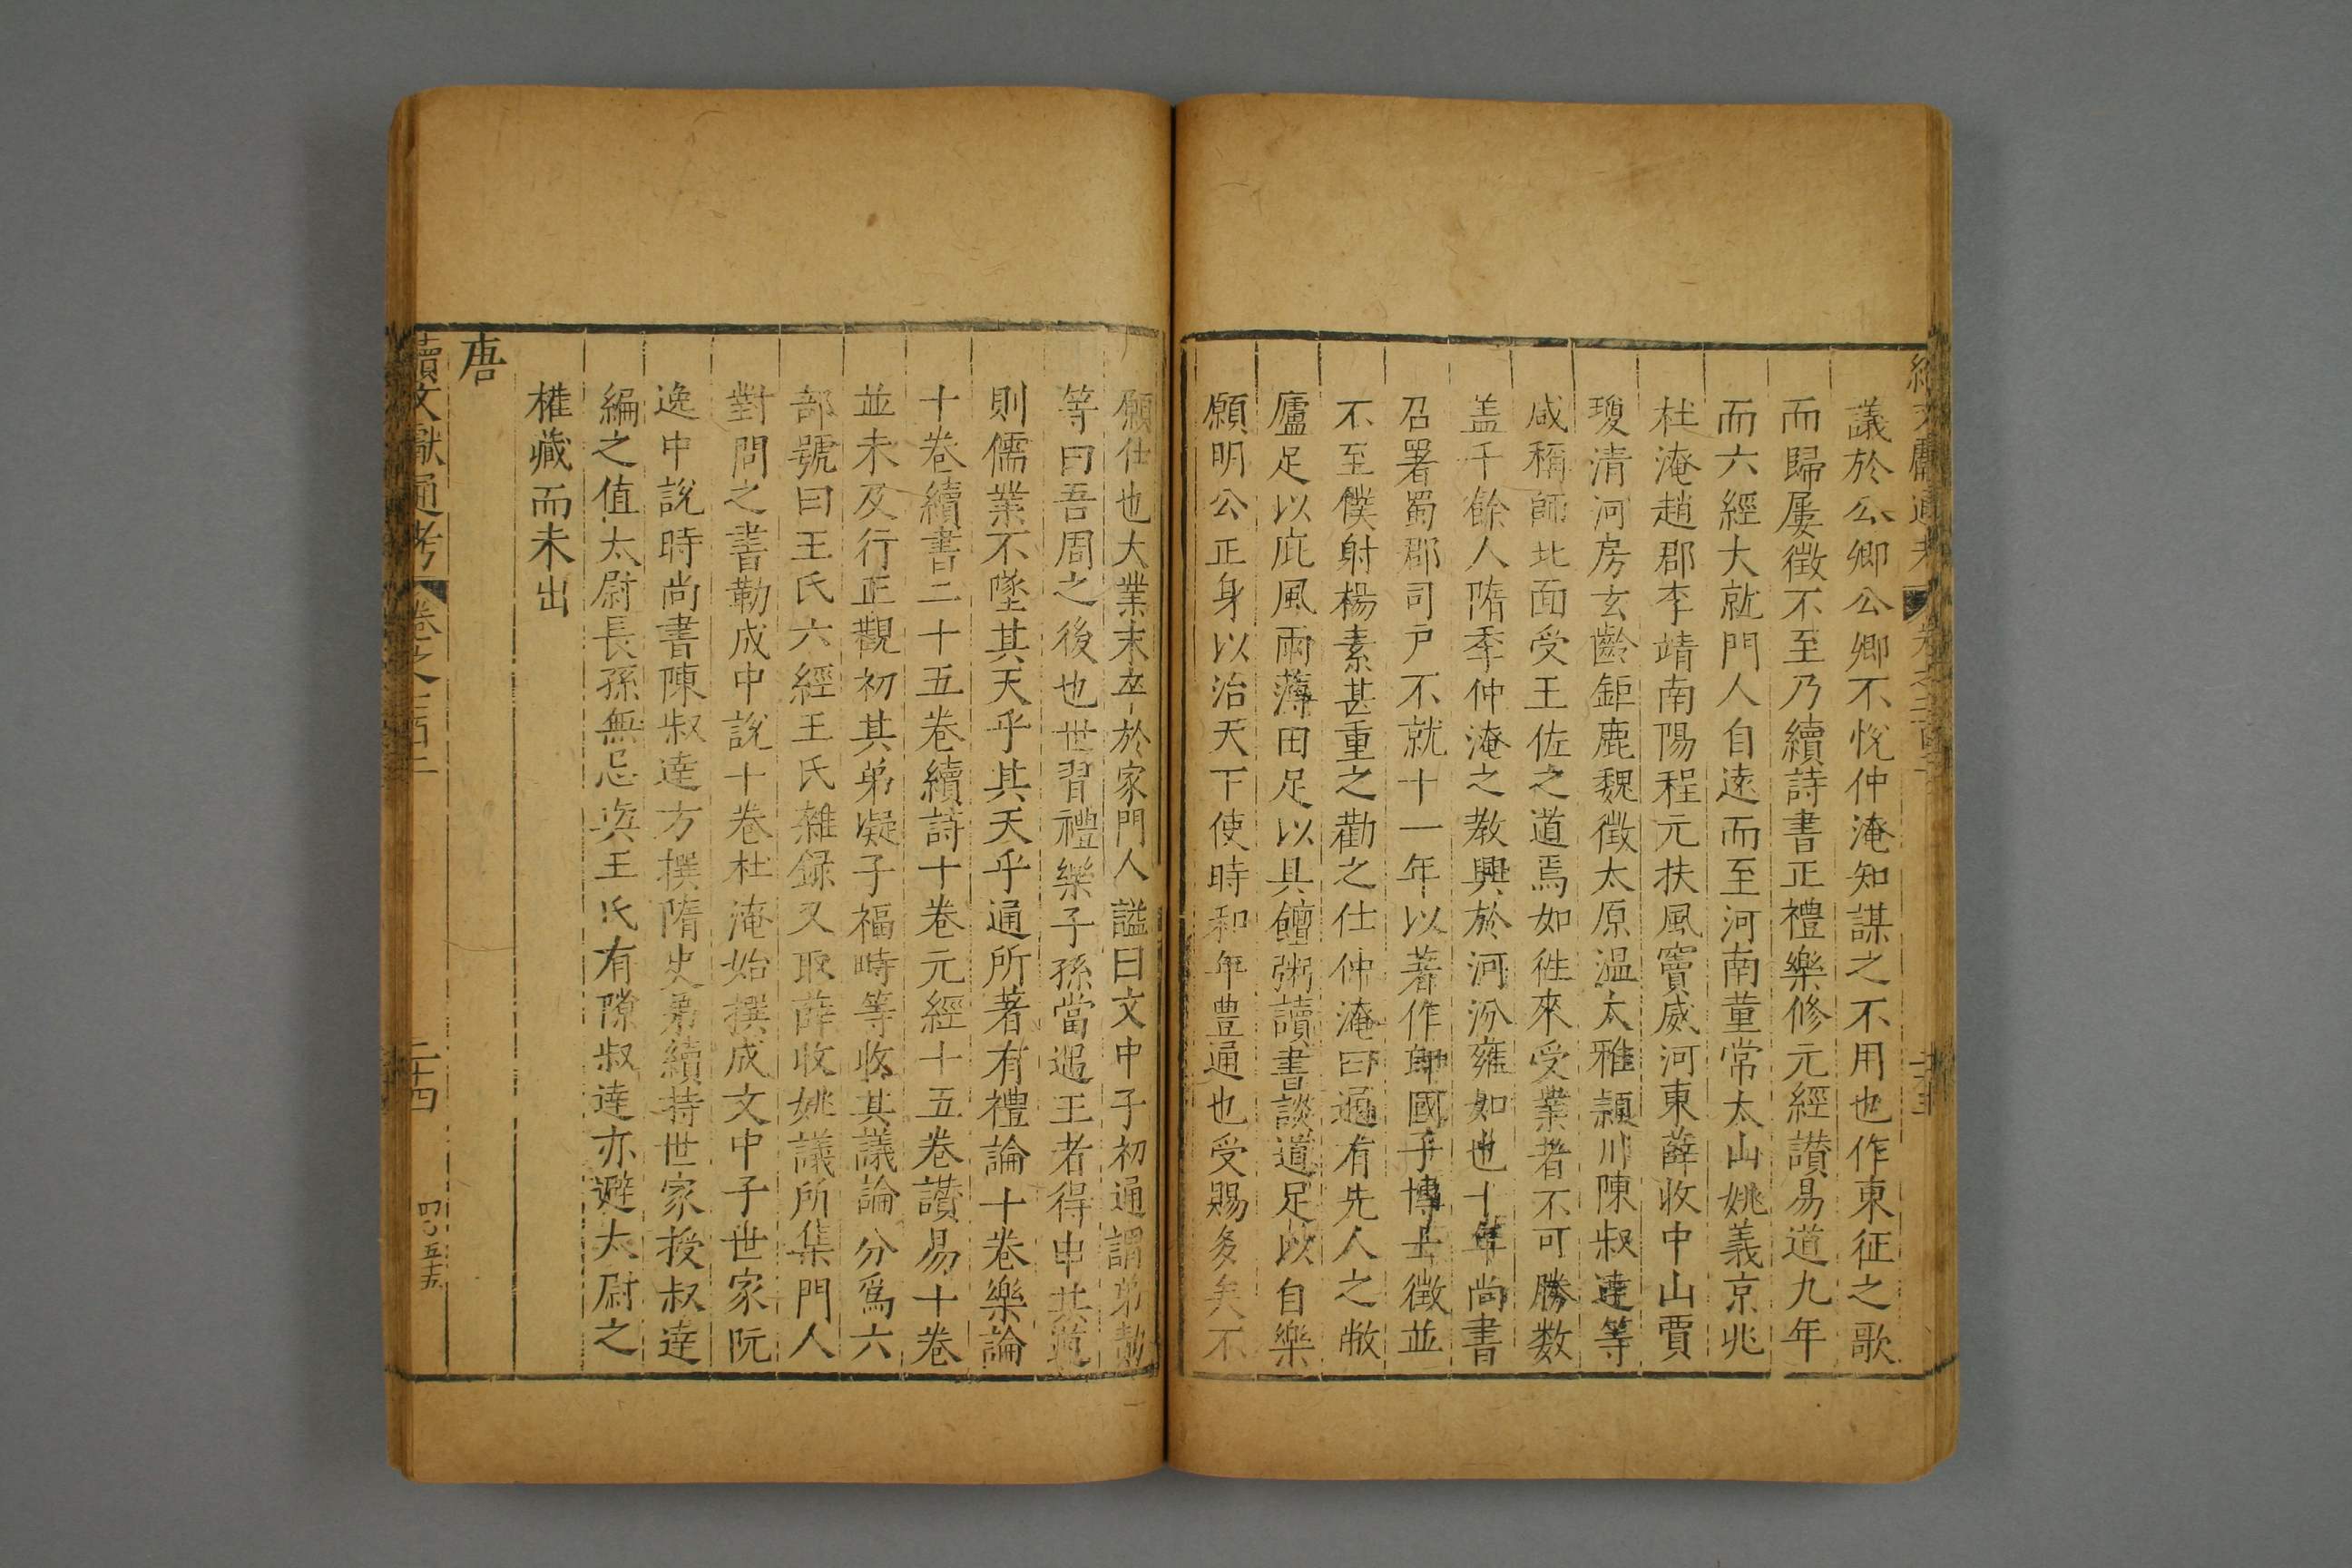 議於公卿公卿不悅仲淹知謀之不用也作東征之歌
而歸屢徵不至乃續詩書正禮樂修元經讃易道九年
而六經大就門人自遠而至河南董常太山姚義京兆
杜淹趙郡李靖南陽程元扶風竇威河東薛收中山賈
瓊清河房玄齡鉅鹿魏徵太原温大雅頴川陳叔逹等
咸稱師北面受王佐之道焉如徃來受業者不可勝数
盖千餘人隋季仲淹之教興於河汾雍如也十年尚書
召署蜀郡司戸不就十一年以著作郎國子博士徵並
不至僕射楊素甚重之勸之仕仲淹曰通有先人之敝
廬足以庇風雨薄田足以具饘粥讀書談道足以自樂
願明公正身以治天下使時和年豊通也受賜多矣不
願仕也大業末卒於家門人謚曰文中子初通謂弟勣
等曰吾周之後也世習禮樂子孫當遇王者得申其道
則儒業不墜其天乎其天乎通所著有禮論十卷樂論
十卷續書二十五卷續詩十卷元經十五卷讃易十卷
並未及行正觀初其弟凝子福畤等收其議論分爲六
部號曰王氏六經王氏雜録又取薛收姚議所集門人
對問之書勒成中說十卷杜淹始撰成文中子世家阮
逸中說時尚書陳叔逹方撰隋史弟續持世家授叔逹
編之值太尉長孫無忌與王氏有隙叔逹亦避太尉之
權藏而未出
唐
續文獻通考 卷之二百二 二十四 四〇五十五